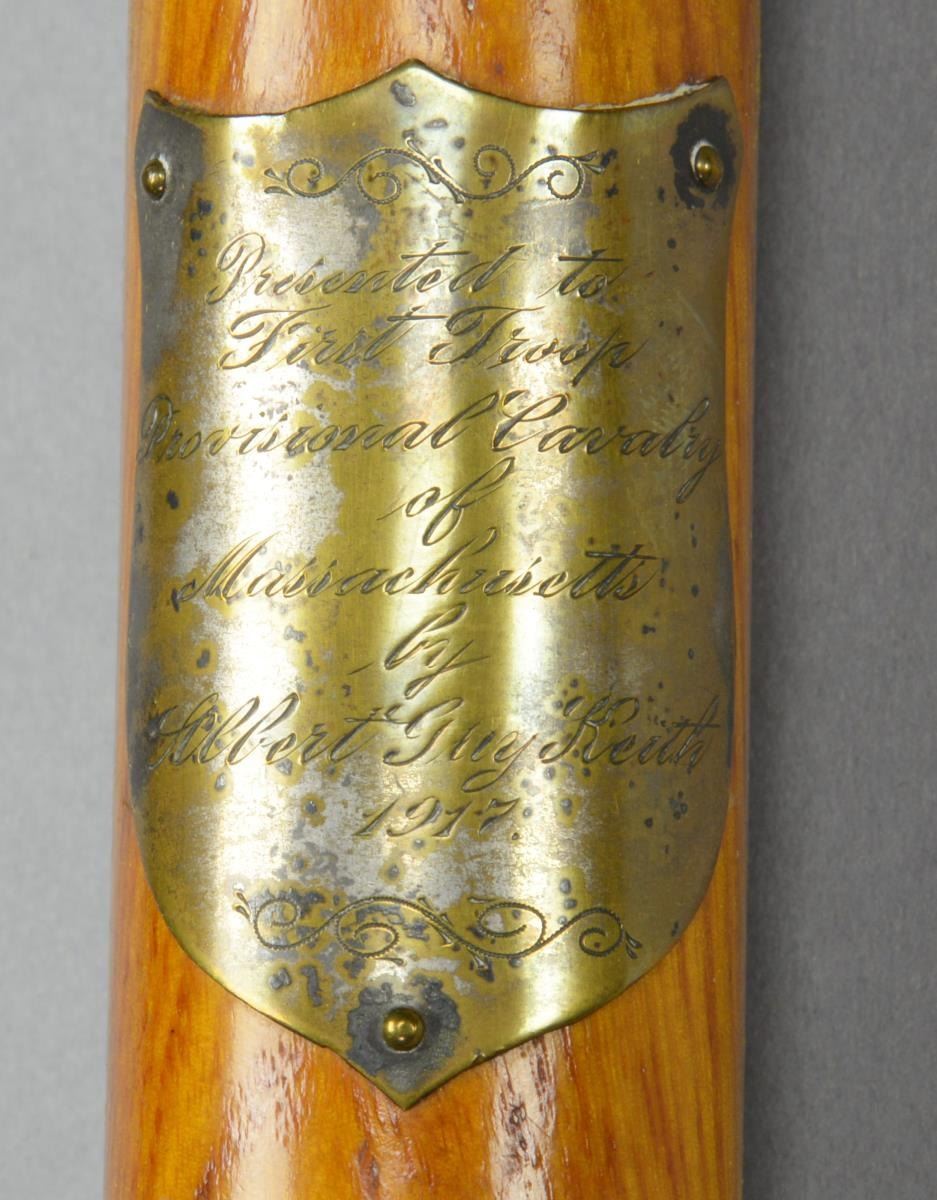 Presented to
First Troop
Provisional Cavalry
of
Massachusetts
by
Albert Guy Keith
1917.